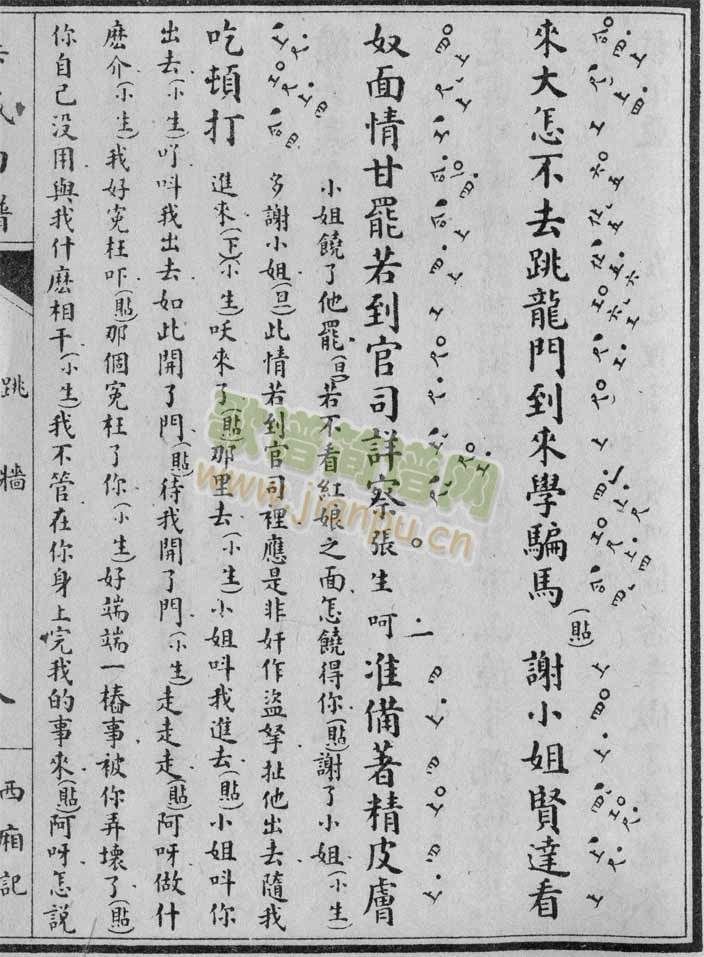 來大怎不去跳龍門到來學騙馬(貼)謝小姐賢達看
奴面情甘罷若到官司詳察張生呵准備著精皮膚
吃頓打
小姐饒了他罷(旦)若不看紅娘之面怎饒得你(貼)謝了小姐(小生)
多謝小姐(旦)此情若到官司裡應是非奸作盜拏扯他出去隨我
進來(下)(小生)呀來了(貼)那里去(小生)小姐叫我進去(貼)小姐叫你
出去(小生)吓叫我出去如此開了門(貼)待我開了門(小生)走走走(貼)阿呀做什
麽介(小生)我好冤枉吓(貼)那個冤枉了你(小生)好端端一樁事被你弄壞了(貼)
你自己没用與我什麽相干(小生)我不管在你身上完我的事來(貼)阿呀怎説
跳牆
西廂記
歌譜簡譜网
www.jianpu.cn